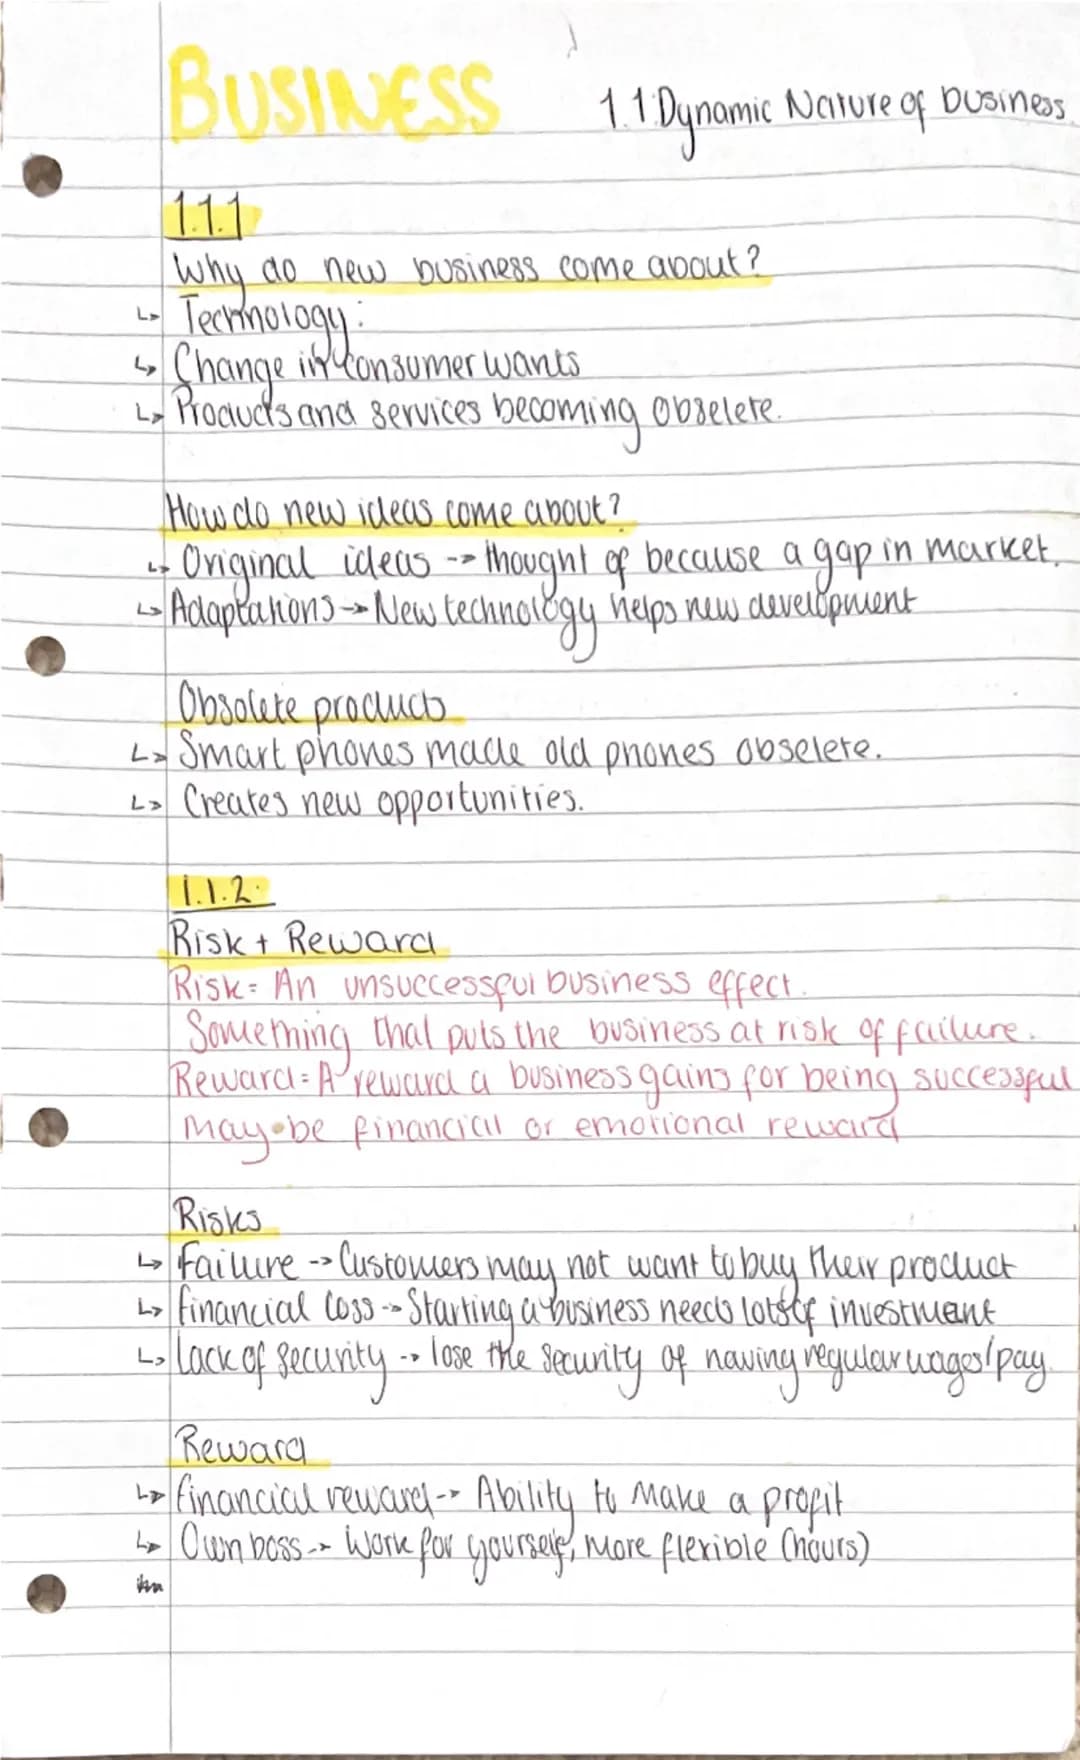 BUSINESS
1.1 Dynamic Nature of business.
1.1.1
Why do new business come about?
↳ Technology:
↳ Change in consumer wants
↳ Products and services becoming obselete.
How do new ideas come about?
↳ Original ideas -> thought of because a gap in market.
↳ Adaptations -> New technology helps new development
Obsolete products
↳ Smart phones made old phones obselete.
↳ Creates new opportunities.
1.1.2.
Risk + Reward
Risk = An unsuccessful business effect.
Something that puts the business at risk of failure.
Reward = A reward a business gains for being successful
may be financial or emotional reward
Risks
↳ Failure -> Customers may not want to buy their product
↳ financial loss -> Starting a business needs lots of investment
↳ Lack of security -> lose the security of having regular wages/pay.
Reward
↳ financial reward -> Ability to make a profit
↳ Own boss -> Work for yourself, more flexible (hours)